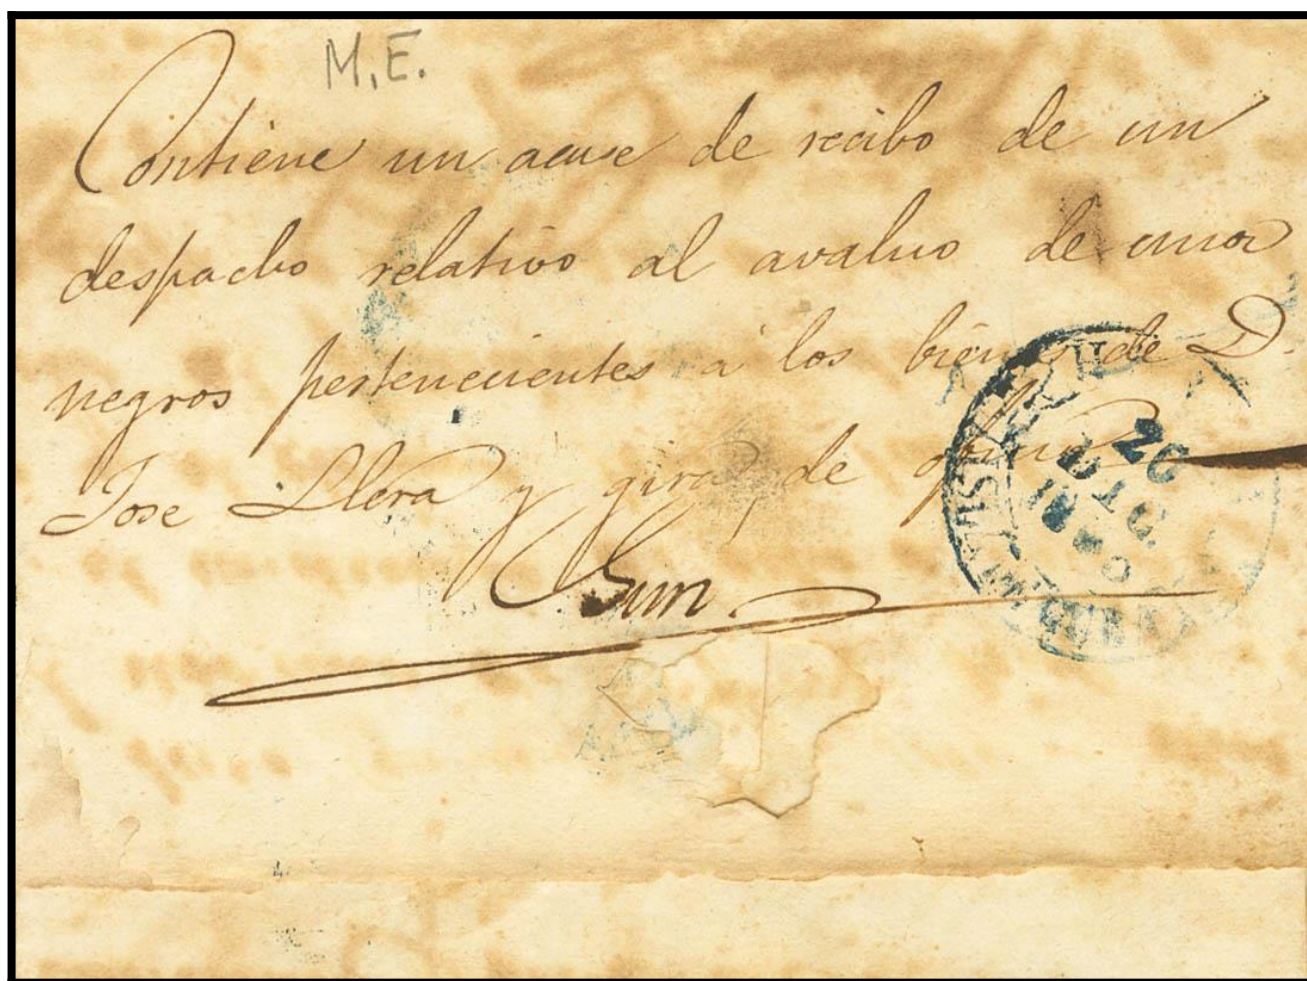 M.E.
Contiene un acuse de recibo de un
despacho relativo al avaluo de unos
negros pertenecientes á los bienes de D.
Jose Llera y gira de
26
DIC